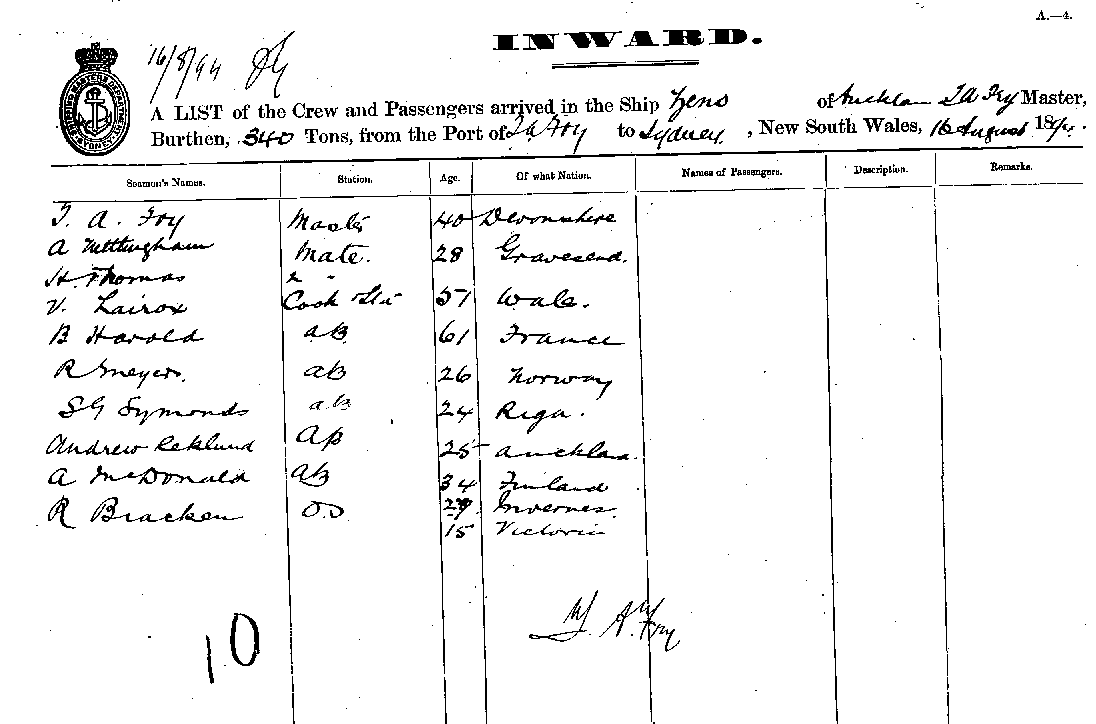 A.—4.
16/8/94
INWARD.
A LIST of the Crew and Passengers arrived in the Ship Zeno of Auckland T A Fry Master,
Burthen, 340 Tons, from the Port of to Sydney, New South Wales, 16 August 1894.
Seamen's Names. Station. Age. Of what Nation. Names of Passengers. Description. Remarks.
T. A. Fry Master 40 Devonshire
A Nettingham Mate. 28 Gravesend.
H. Thomas " "
V. Cook 57 Wale.
B Harold AB 61 France
R Meyers. AB 26 Norway
S G Symonds AB 24 Riga.
Andrew Ecklund AB 25 Aucklan.
A McDonald AB 34 Finland
R Bracken OS 29 Invernes.
15 Victoria
10